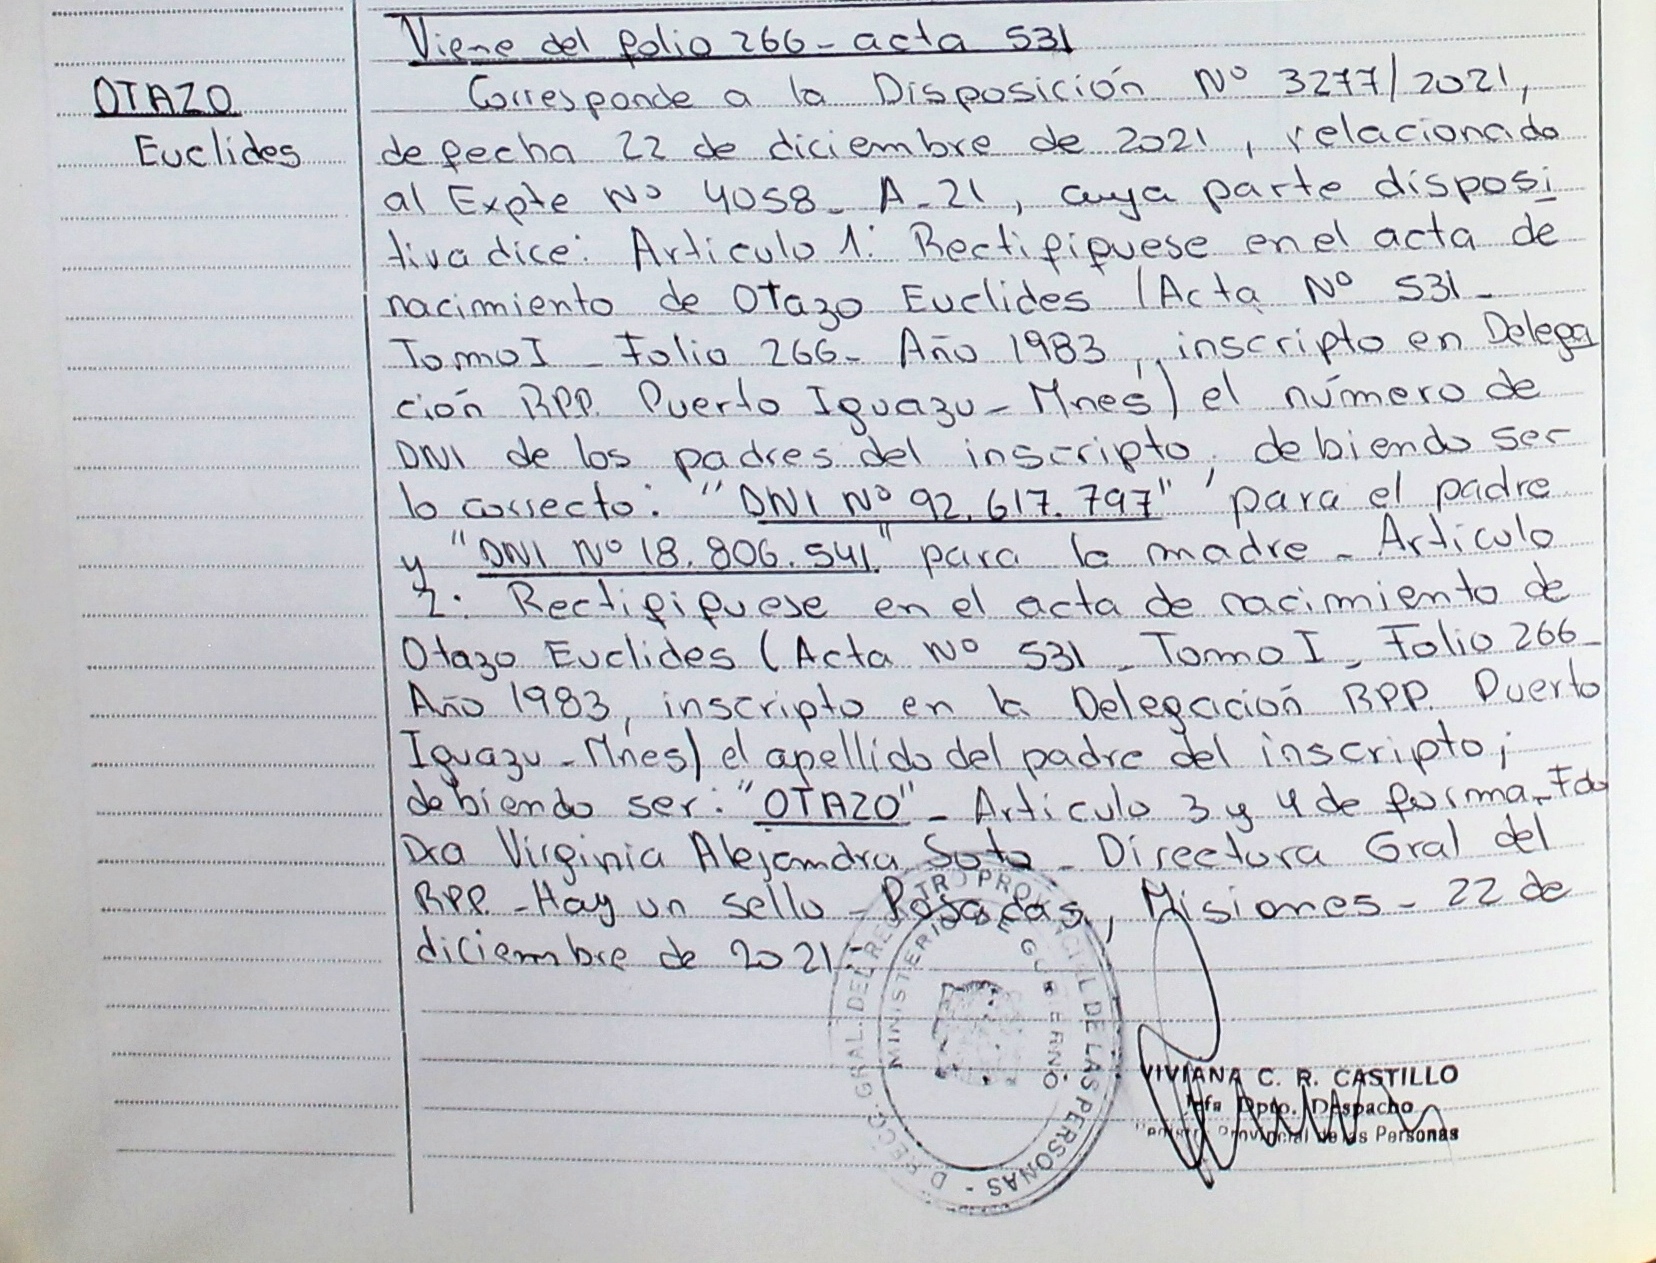 Viene del folio 266- acta 531
OTAZO
Euclides
Corresponde a la Disposición Nº 3277/2021,
de fecha 22 de diciembre de 2021, relacionado
al Expte Nº 4058- A-21, cuya parte disposi
tiva dice: Articulo 1: Rectifiquese en el acta de
nacimiento de Otazo Euclides (Acta Nº 531-
Tomo I - Folio 266- Año 1983, inscripto en Delega
ción RPP. Puerto Iguazu-Mnes) el número de
DNI de los padres del inscripto, debiendo ser
lo correcto: "DNI Nº 92.617.797" para el padre
y "DNI Nº 18.806.541" para la madre - Artículo
2: Rectifiquese en el acta de nacimiento de
Otazo Euclides (Acta Nº 531 - Tomo I - Folio 266-
Año 1983, inscripto en la Delegación RPP. Puerto
Iguazu-Mnes) el apellido del padre del inscripto;
debiendo ser: "OTAZO" - Articulo 3 y 4 de forma-Fdo
Dra Virginia Alejandra Soto - Directora Gral del
RPP - Hay un sello - Posadas, Misiones - 22 de
diciembre de 2021.-
DIRECC. GRAL. DEL REGISTRO PROVINCIAL DE LAS PERSONAS -
MINISTERIO DE GOBIERNO
VIVIANA C. R. CASTILLO
Jefa Dpto. Despacho
Registro Provincial de las Personas